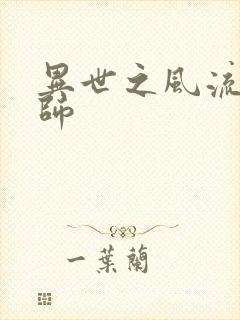 異世之風流
師
一葉蘭